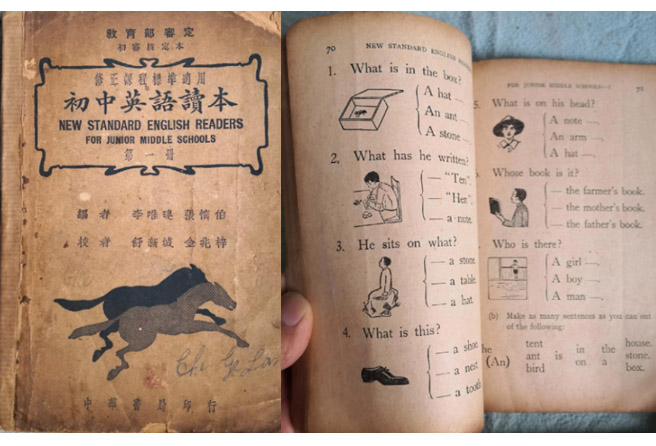 教育部審定
初審核定本
修正課程標準適用
初中英語讀本
NEW STANDARD ENGLISH READERS
FOR JUNIOR MIDDLE SCHOOLS
第一冊
編者 李唯建 張慎伯
校者 舒新城 金兆梓
中華書局印行
70 NEW STANDARD ENGLISH
1. What is in the box?
A hat —.
An ant —.
A stone —.
2. What has he written?
— "Ten".
— "Her".
— a note.
3. He sits on what?
— a stone.
— a table.
— a hat.
4. What is this?
— a shoe
— a nest
— a tooth
FOR JUNIOR MIDDLE SCHOOLS—I 71
5. What is on his head?
A note —.
An arm —.
A hat —.
Whose book is it?
— the farmer's book.
— the mother's book.
— the father's book.
Who is there?
A girl —.
A boy —.
A man —.
(b) Make as many sentences as you can out
of the following:
he tent in the house.
(An) ant is on a stone.
bird box.